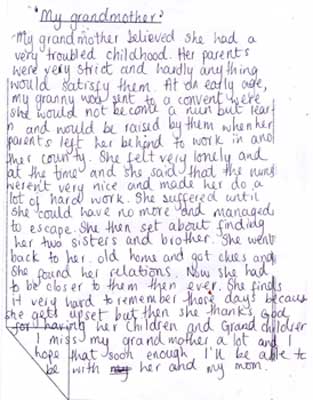 "My grandmother"
My grandmother believed she had a
very troubled childhood. Her parents
were very strict and hardly anything
would satisfy them. At an early age,
my granny was sent to a convent were
she would not become a nun but lear
n and would be raised by them when her
parents left her behind to work in ano
ther country. She felt very lonely and
at the time and she said that the nuns
weren't very nice and made her do a
lot of hard work. She suffered until
she could have no more and managed
to escape. She then set about finding
her two sisters and brother. She went
back to her old home and got clues and
she found her relations. Now she had
to be closer to them then ever. She finds
it very hard to remember those days because
she gets upset but then she thanks God
for having her children and Grandchildren
I miss my grandmother a lot and I
hope that soon enough I'll be able to
be with her and my mom.